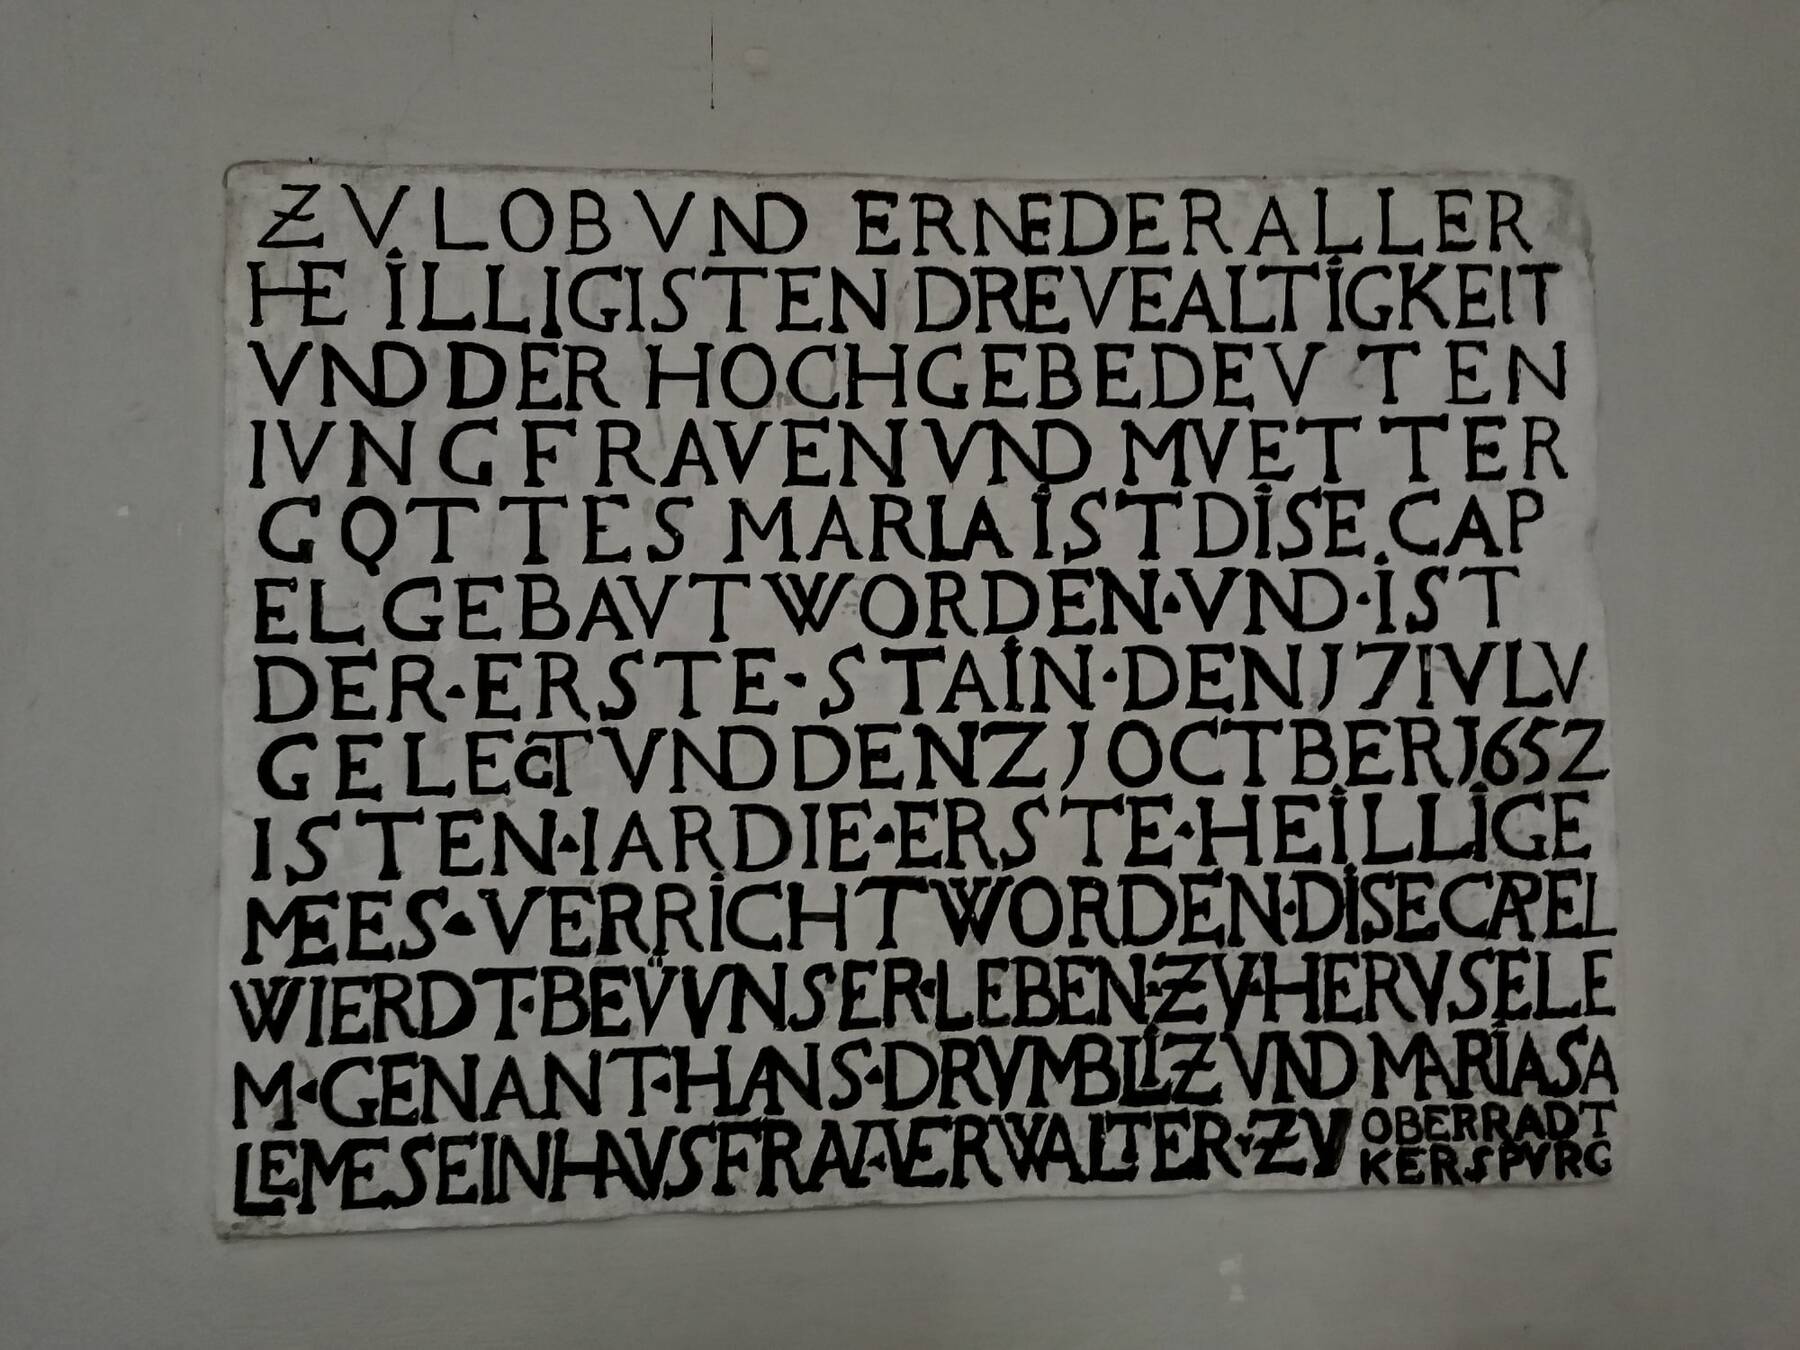 ZV LOB VND ERNE DER ALLER
HEILLIGISTEN DREVEALTIGKEIT
VND DER HOCHGEBEDEVTEN
IVNGFRAVEN VND MVETTER
GOTTES MARIA IST DISE CAP
EL GEBAVT WORDEN·VND·IST
DER·ERSTE·STAIN·DEN J7 IVLV
GELEGT VND DEN ZJ OCTBER J652
ISTEN·IAR DIE·ERSTE·HEILLIGE
MEES·VERRICHT WORDEN·DISE CAPEL
WIERDT·BEV̈ VNSER·LEBEN·ZV·HERVSELE
M·GENANT·HANS·DRVMBLIZ VND MARIA SA
LEME SEIN HAVSFRAV·VERWALTER·ZV OBERRADT
KERSPVRG